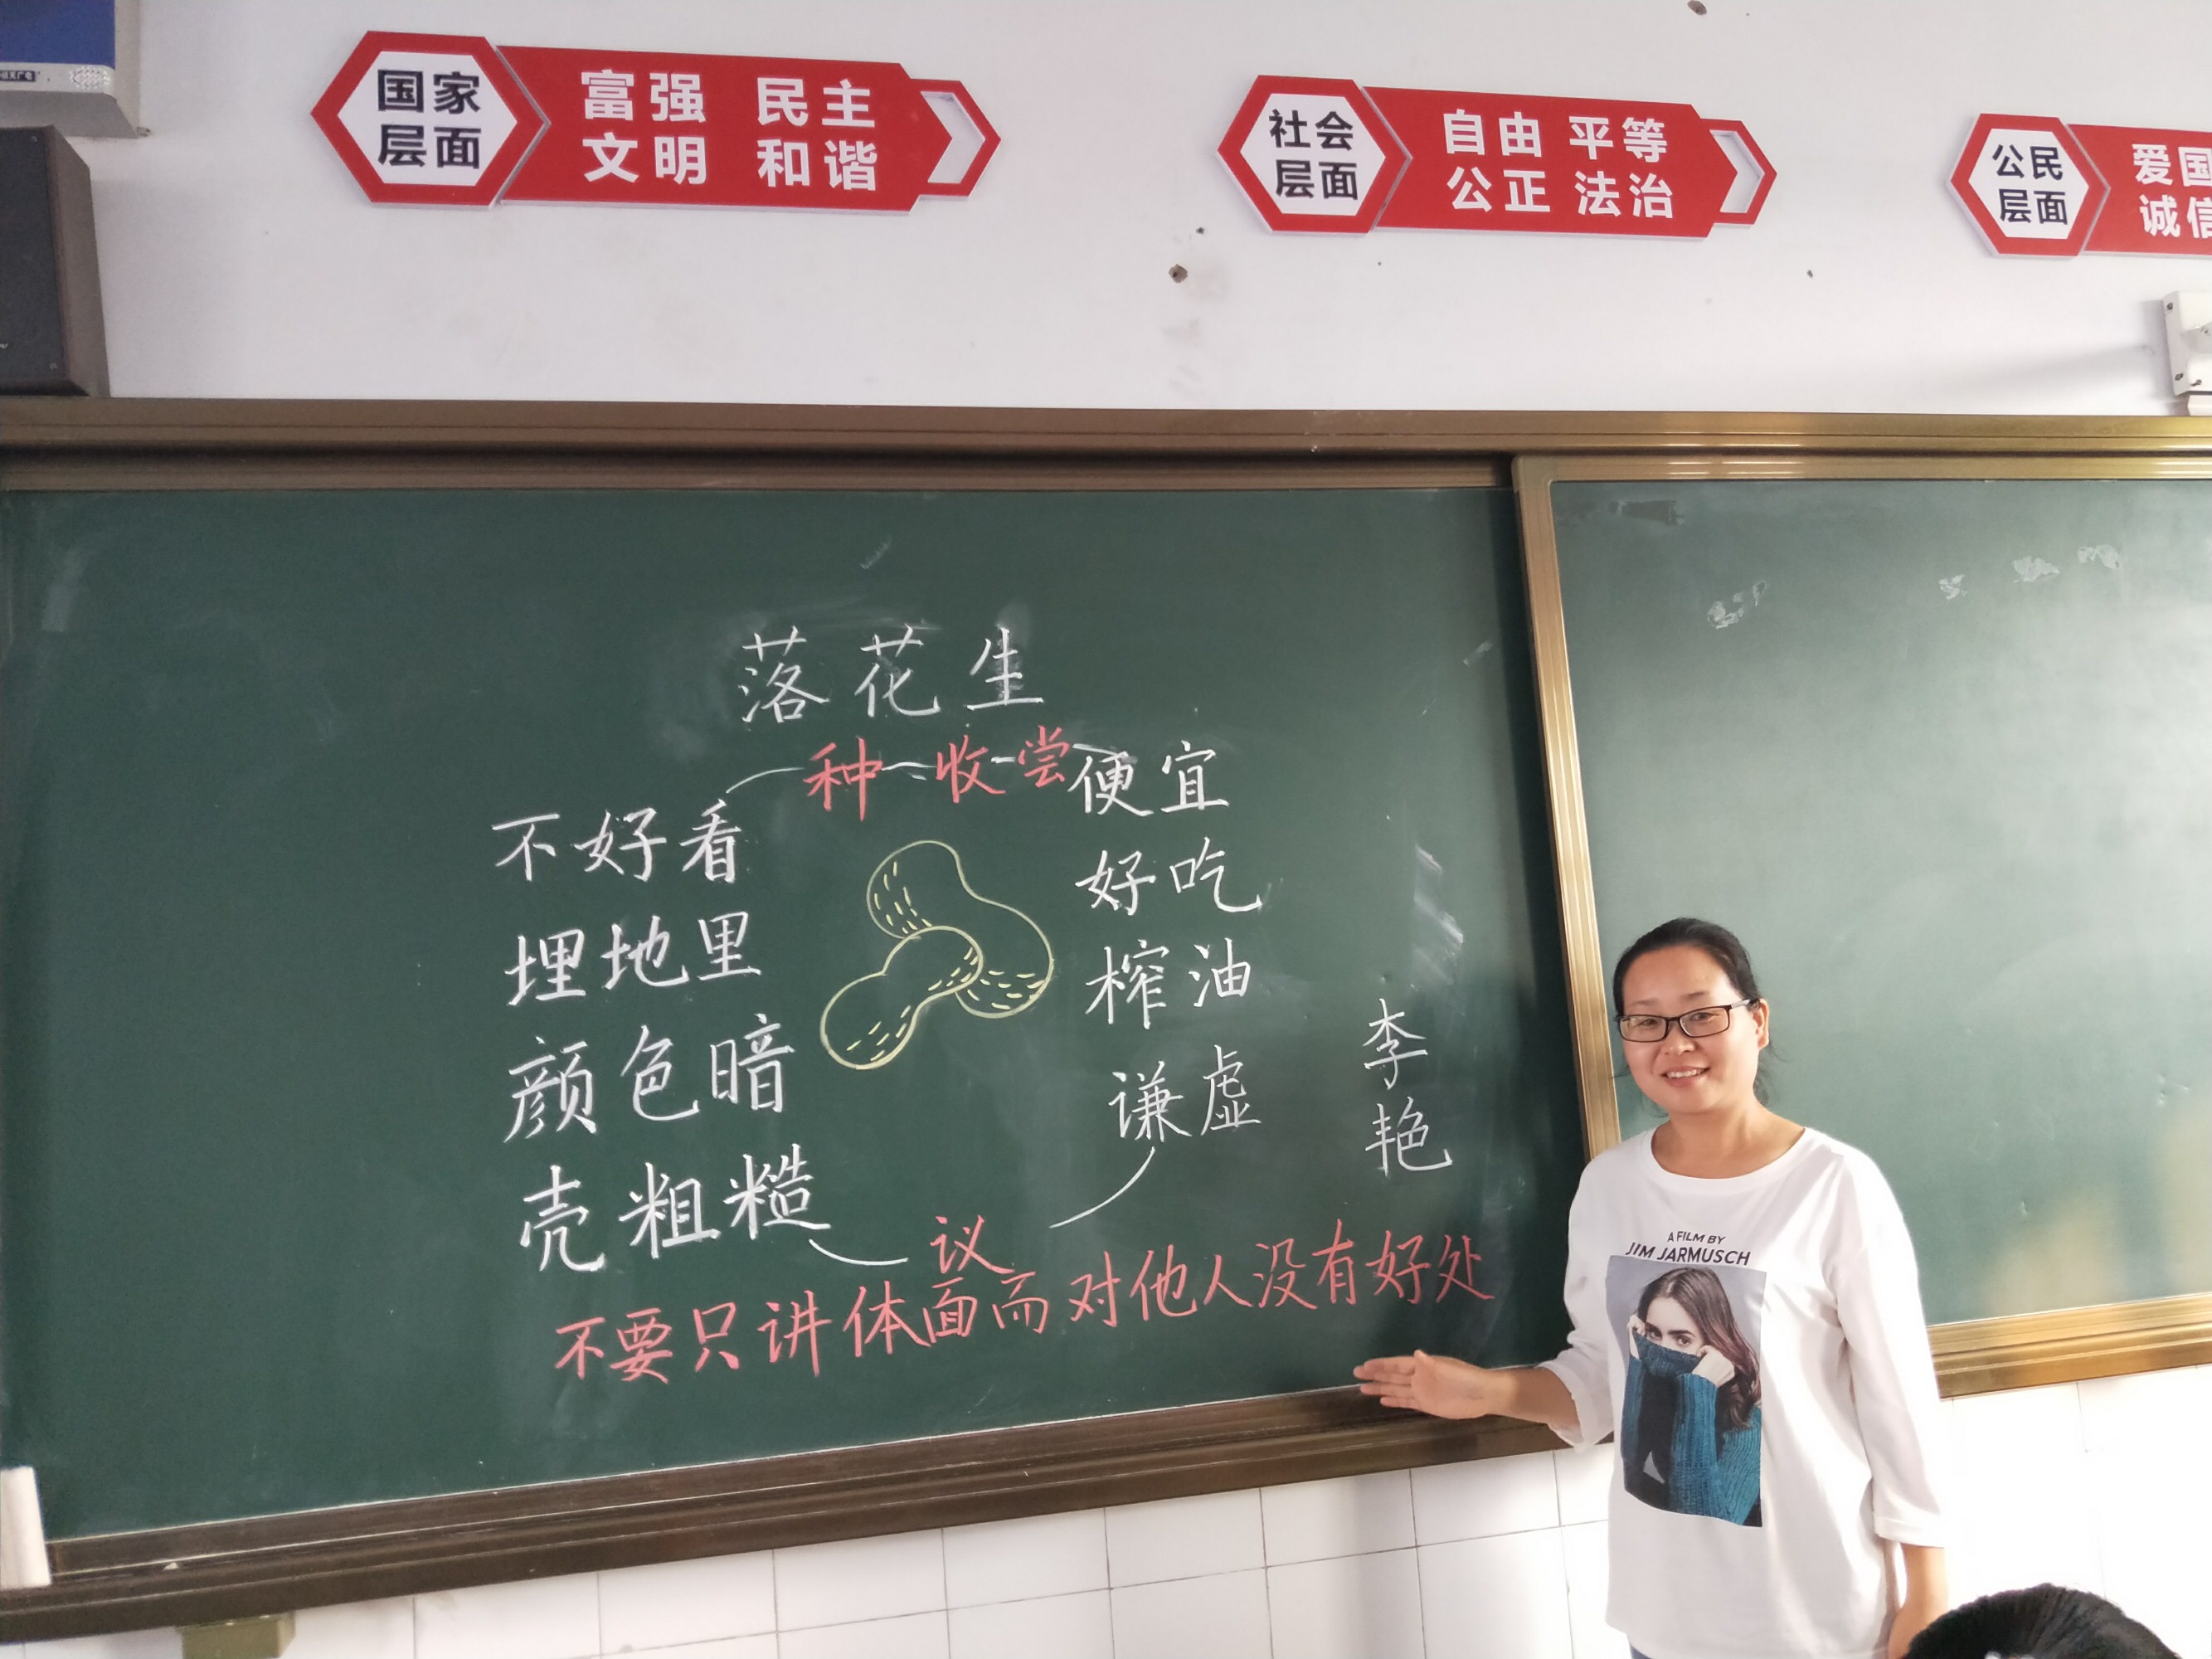 国家
层面
富强 民主
文明 和谐
社会
层面
自由 平等
公正 法治
公民
层面
爱国
诚信
落花生
种-收-尝
不好看
埋地里
颜色暗
壳粗糙
便宜
好吃
榨油
谦虚
议
不要只讲体面而对他人没有好处
李
艳
A FILM BY
JIM JARMUSCH